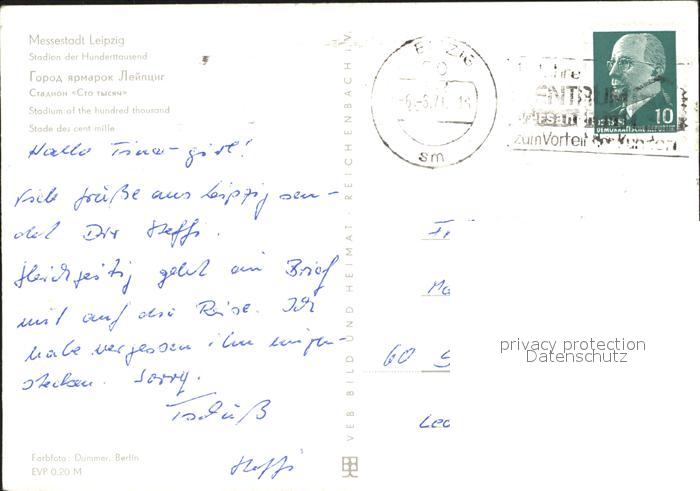 Messestadt Leipzig
Stadion der Hunderttausend
Город ярмарок Лейпциг
Стадион «Сто тысяч»
Stadium of the hundred thousand
Stade des cent mille
Hallo Tina-girl!
Viele Grüße aus Leipzig sen-
det Dir Steffi.
Gleichzeitig geht ein Brief
mit auf die Reise. Ich
habe vergessen ihn einzu-
stecken. Sorry.
Tschüß
Steffi
Farbfoto: Dummer, Berlin
EVP 0,20 M
VEB BILD UND HEIMAT · REICHENBACH i. V.
sm
zum Vorteil der Kunden
10
DEMOKRATISCHE REPUBLIK
60
privacy protection
Datenschutz